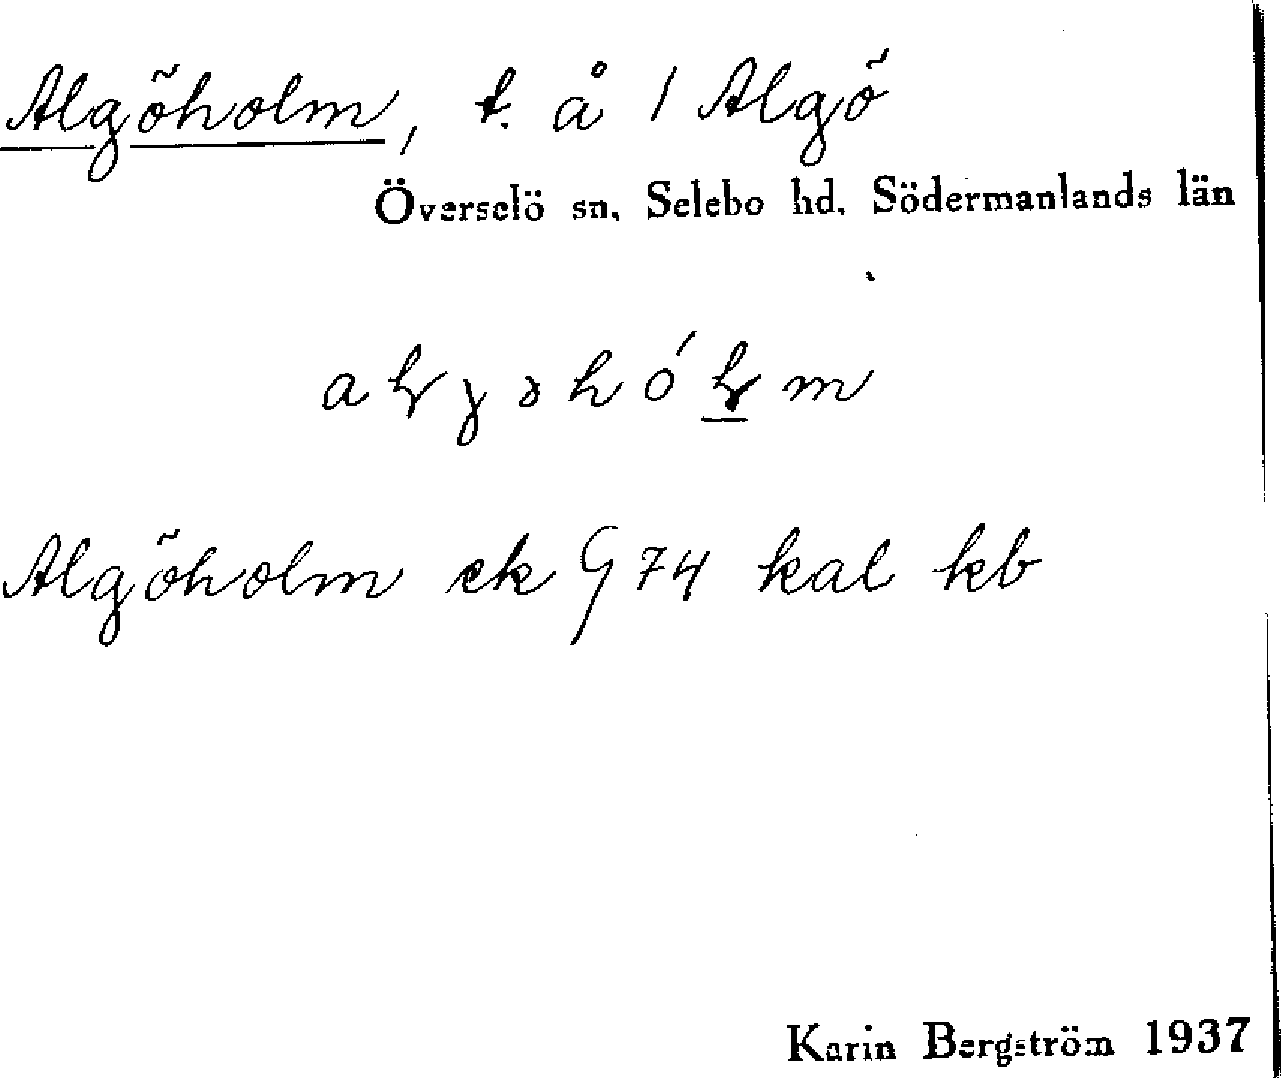 Algöholm, t. å 1 Algö
Överselö sn. Selebo hd. Södermanlands län
Algöholm ek G 74 kal kb
Karin Bergström 1937